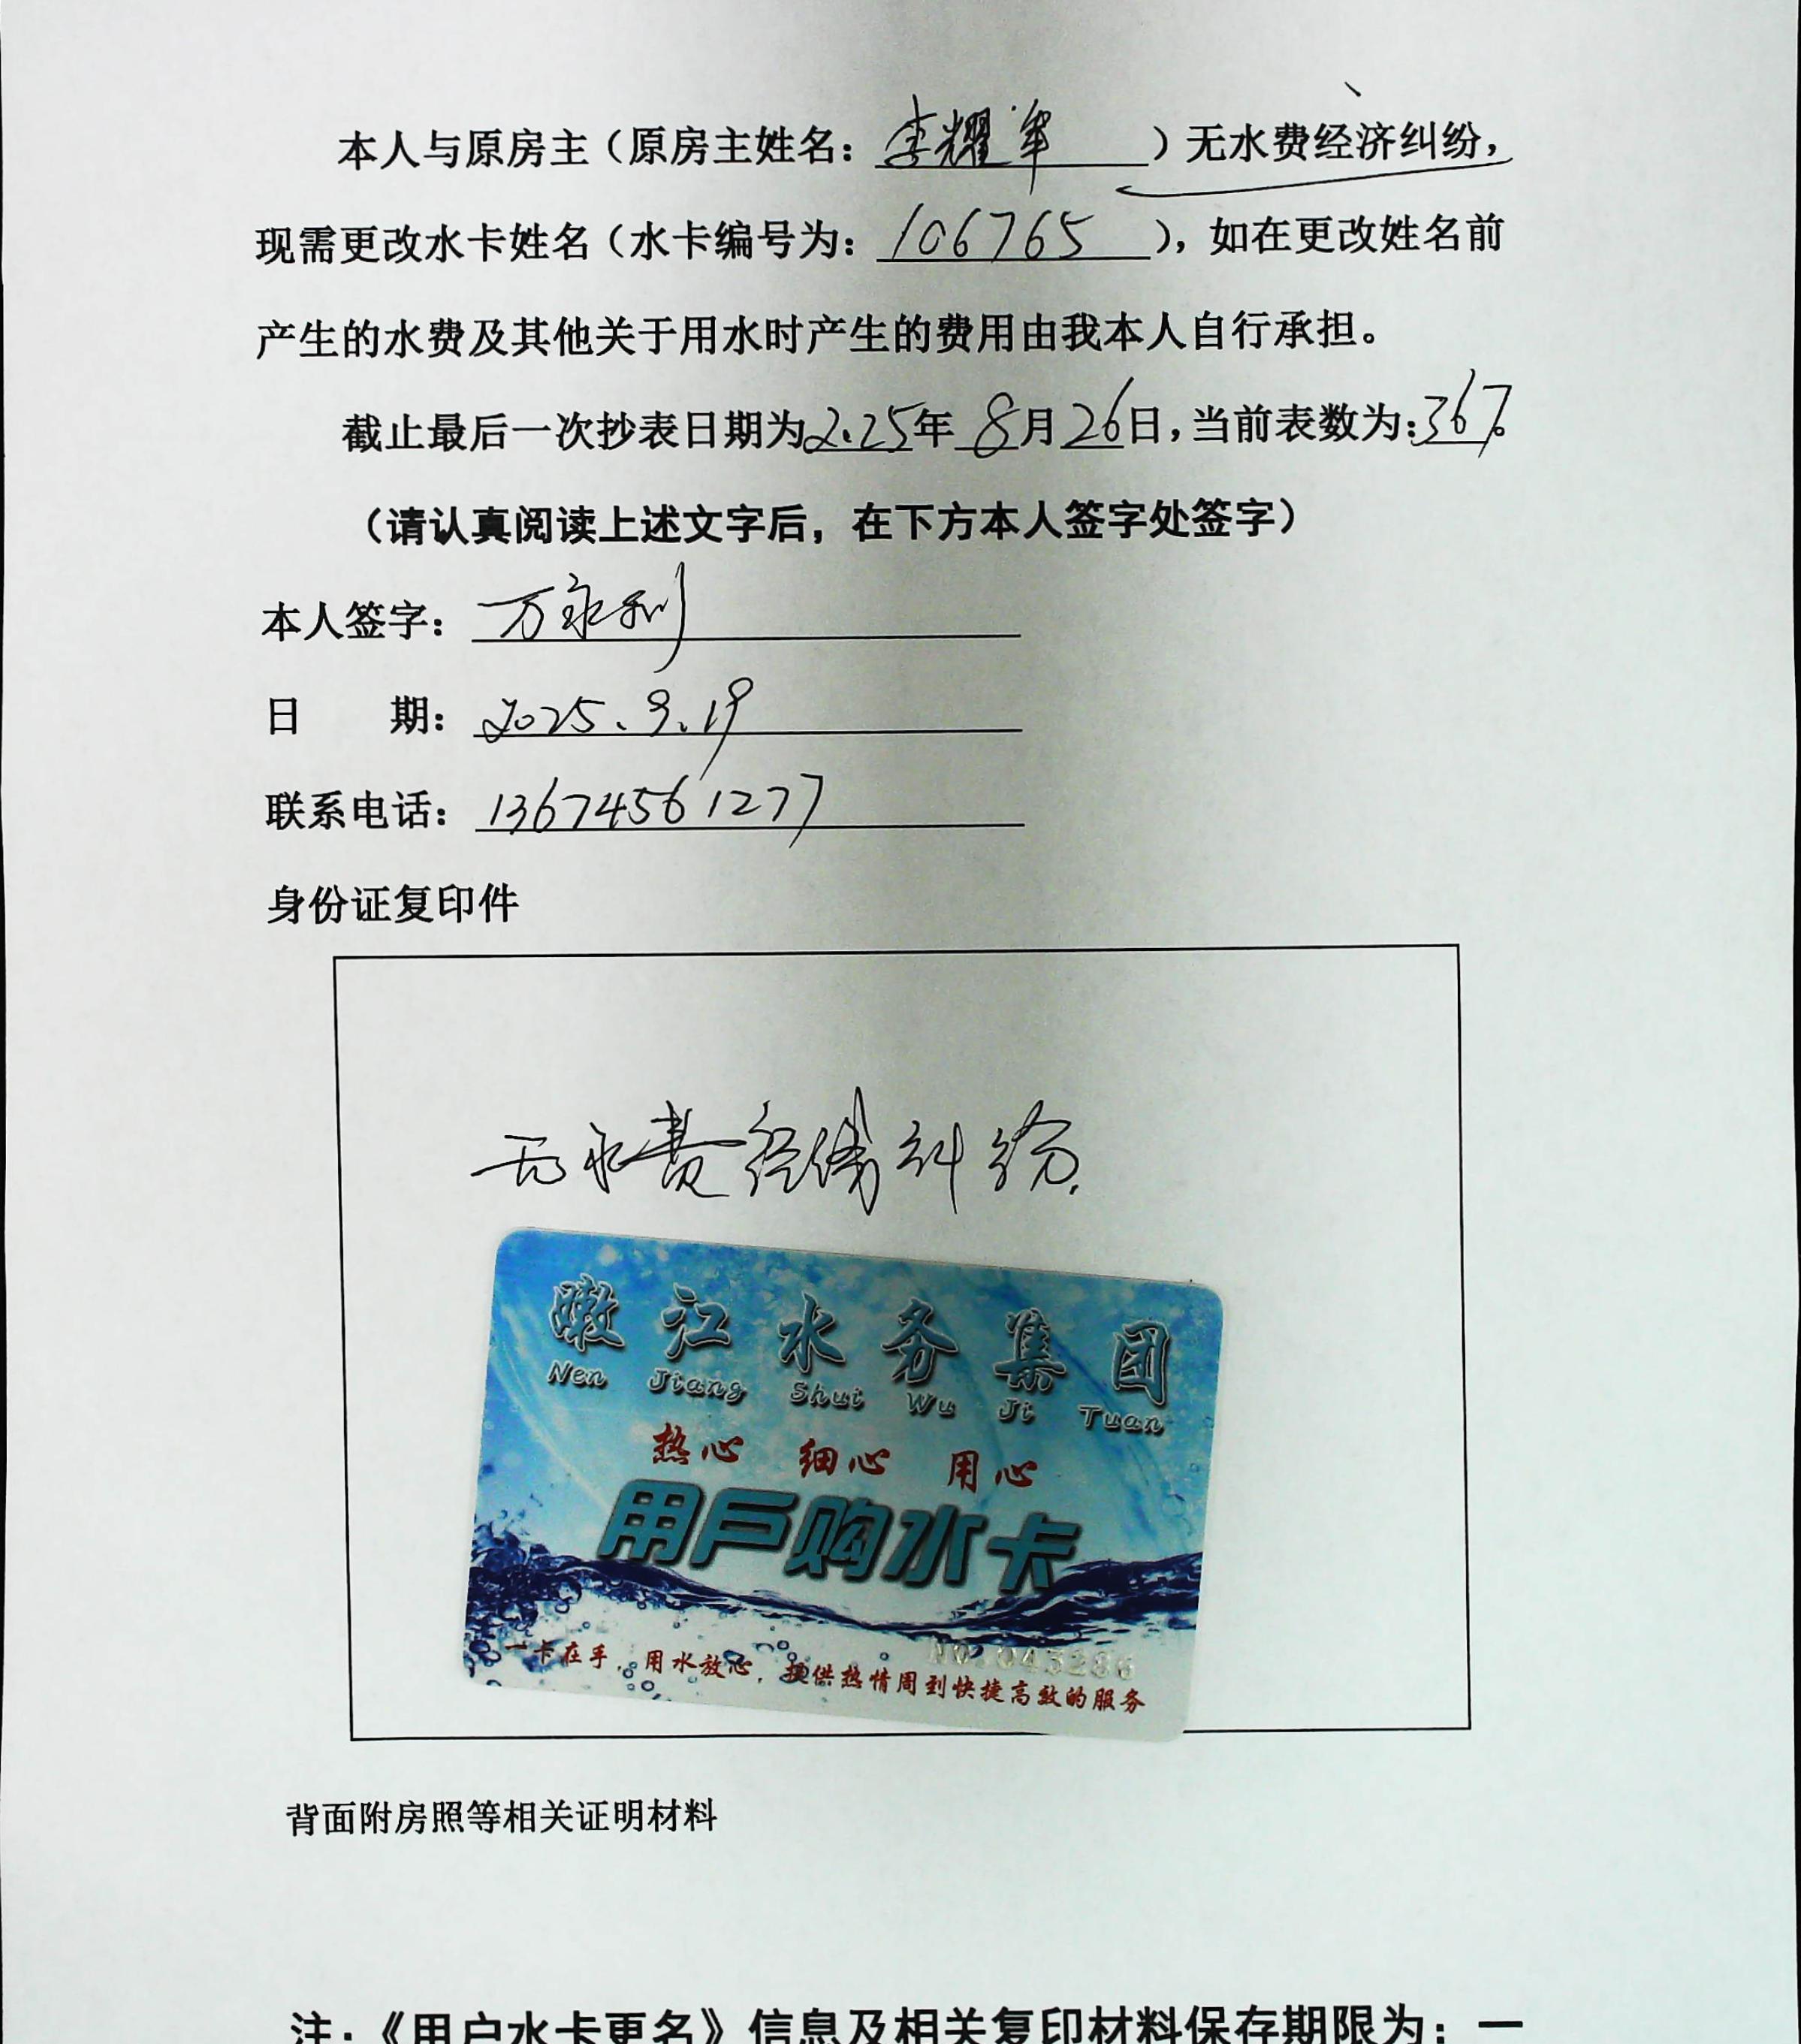 本人与原房主（原房主姓名：李耀军）无水费经济纠纷，
现需更改水卡姓名（水卡编号为：106765），如在更改姓名前
产生的水费及其他关于用水时产生的费用由我本人自行承担。
截止最后一次抄表日期为2.25年8月26日，当前表数为：367。
（请认真阅读上述文字后，在下方本人签字处签字）
本人签字：万永利
日 期：2025.9.19
联系电话：13674561277
身份证复印件
无水费经济纠纷.
嫩江水务集团
Nen Jiang Shui Wu Ji Tuan
热心 细心 用心
用户购水卡
NO.043286
一卡在手，用水放心，提供热情周到快捷高效的服务
背面附房照等相关证明材料
注：《用户水卡更名》信息及相关复印材料保存期限为：一